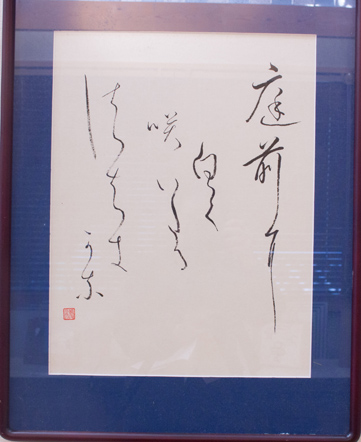 庭前に
白く
咲いたる
つはき
かな